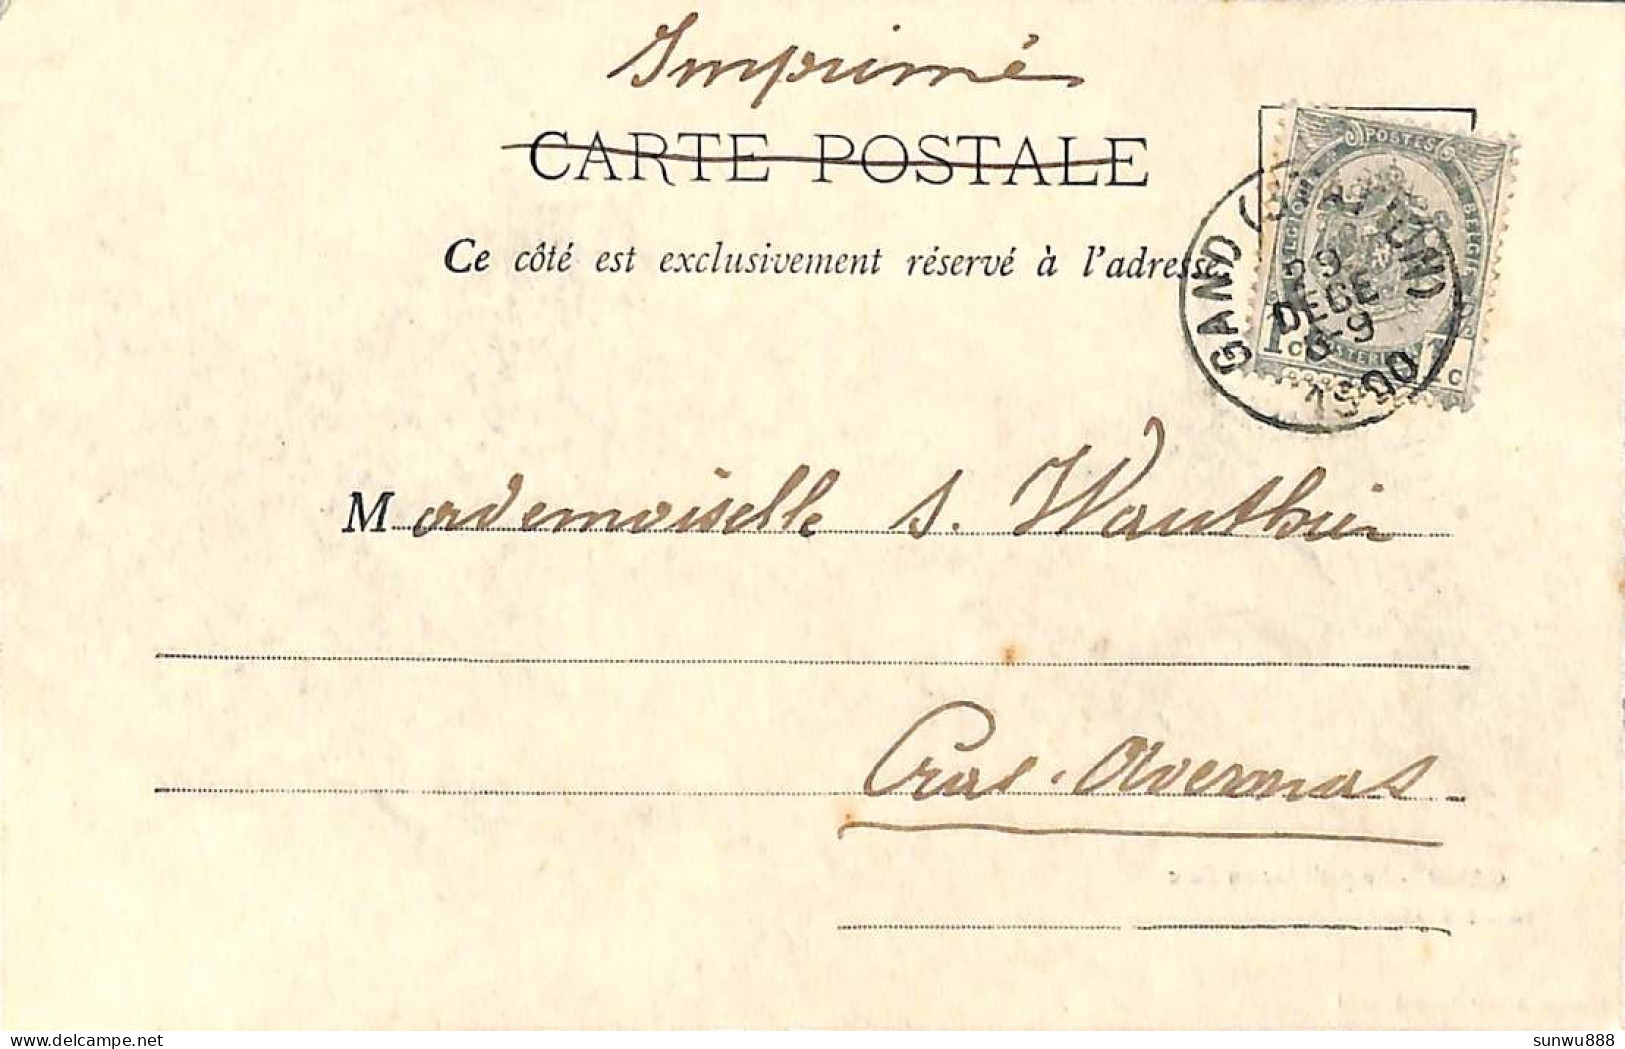 Imprimé
CARTE POSTALE
Ce côté est exclusivement réservé à l'adresse
POSTES
BELGIQUE
BELGIË
GAND (STATION)
29
DECE
8-9
1900
1 c
1 c
Mademoiselle S. Wauthier
Cras-Avernas
sunwu888